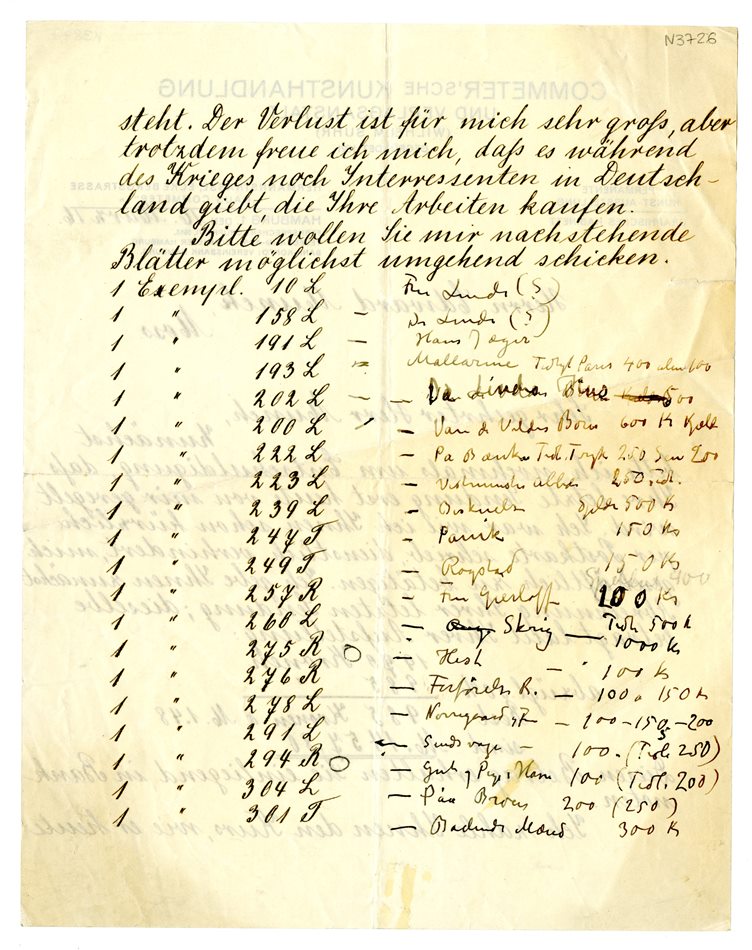 N3726
steht. Der Verlust ist für mich sehr groß, aber
trotzdem freue ich mich, daß es während
des Krieges noch Interressenten in Deutsch-
land giebt die Ihre Arbeiten kaufen.
Bitte wollen Sie mir nachstehende
Blätter möglichst umgehend schicken.
1 Exempl. 10 L Fru Linde (?)
1 " 158 L – Dr Linde (?)
1 " 191 L – Hans Jæger
1 " 193 L = Mallarmé Paris 400
1 " 202 L – 500
1 " 200 L – Van d Veldes Børn 600 K
1 " 222 L – Pa Bænken Tidl. Tryk 250 200
1 " 223 L – 250
1 " 239 L – 500 K
1 " 247 T – Panik 150 Ks
1 " 249 T – Rogstad 150 Ks
1 " 257 R – Fru Gierloff 100 Ks
1 " 260 L – Skrig – Tidl. 500 K
1000 Ks
1 " 275 R – Hest – 100 K
1 " 276 R – R. – 100 a 150 K
1 " 278 L – Nørregaard og – 100–150–200
1 " 291 L – – 100. (Tidl. 250)
1 " 294 R – Gut og Pige i Havn 100 (Tidl. 200)
1 " 304 L – Paa Broen 200 (250)
1 " 301 T – Badende Mænd 300 K